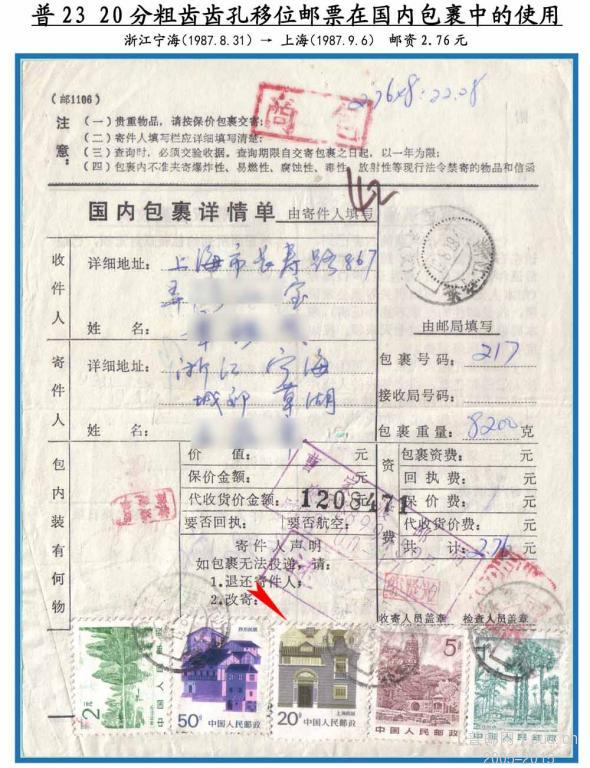 普23 20分粗齿齿孔移位邮票在国内包裹中的使用
浙江宁海(1987.8.31) → 上海(1987.9.6) 邮资2.76元
(邮1106)
2.76×8=22.08
注意：
(一) 贵重物品，请按保价包裹交寄；
(二) 寄件人填写栏应详细填写清楚；
(三) 查询时，必须交验收据。查询期限自交寄包裹之日起，以一年为限；
(四) 包裹内不准夹寄爆炸性、易燃性、腐蚀性、毒性、放射性等现行法令禁寄的物品和信函
国内包裹详情单 由寄件人填写
收件人
详细地址：上海市长寿路867
弄
姓 名：
由邮局填写
寄件人
详细地址：浙江 宁海
城郊 草湖
姓 名：
包裹号码：217
接收局号码：
包裹重量：8200克
包内装有何物
价 值： 元
保价金额： 元
代收货价金额： 元
要否回执： 要否航空：
1208471
资费
包裹资费： 元
回执费： 元
保价费： 元
代收货价费： 元
共 计：2.76元
寄件人声明
如包裹无法投递，请：
1.退还寄件人；
2.改寄：
收寄人员盖章 检查人员盖章
2分 中国人民邮政
50分 中国人民邮政
20分 上海民居 中国人民邮政
5分 中国人民邮政
中国人民邮政
2005-2015